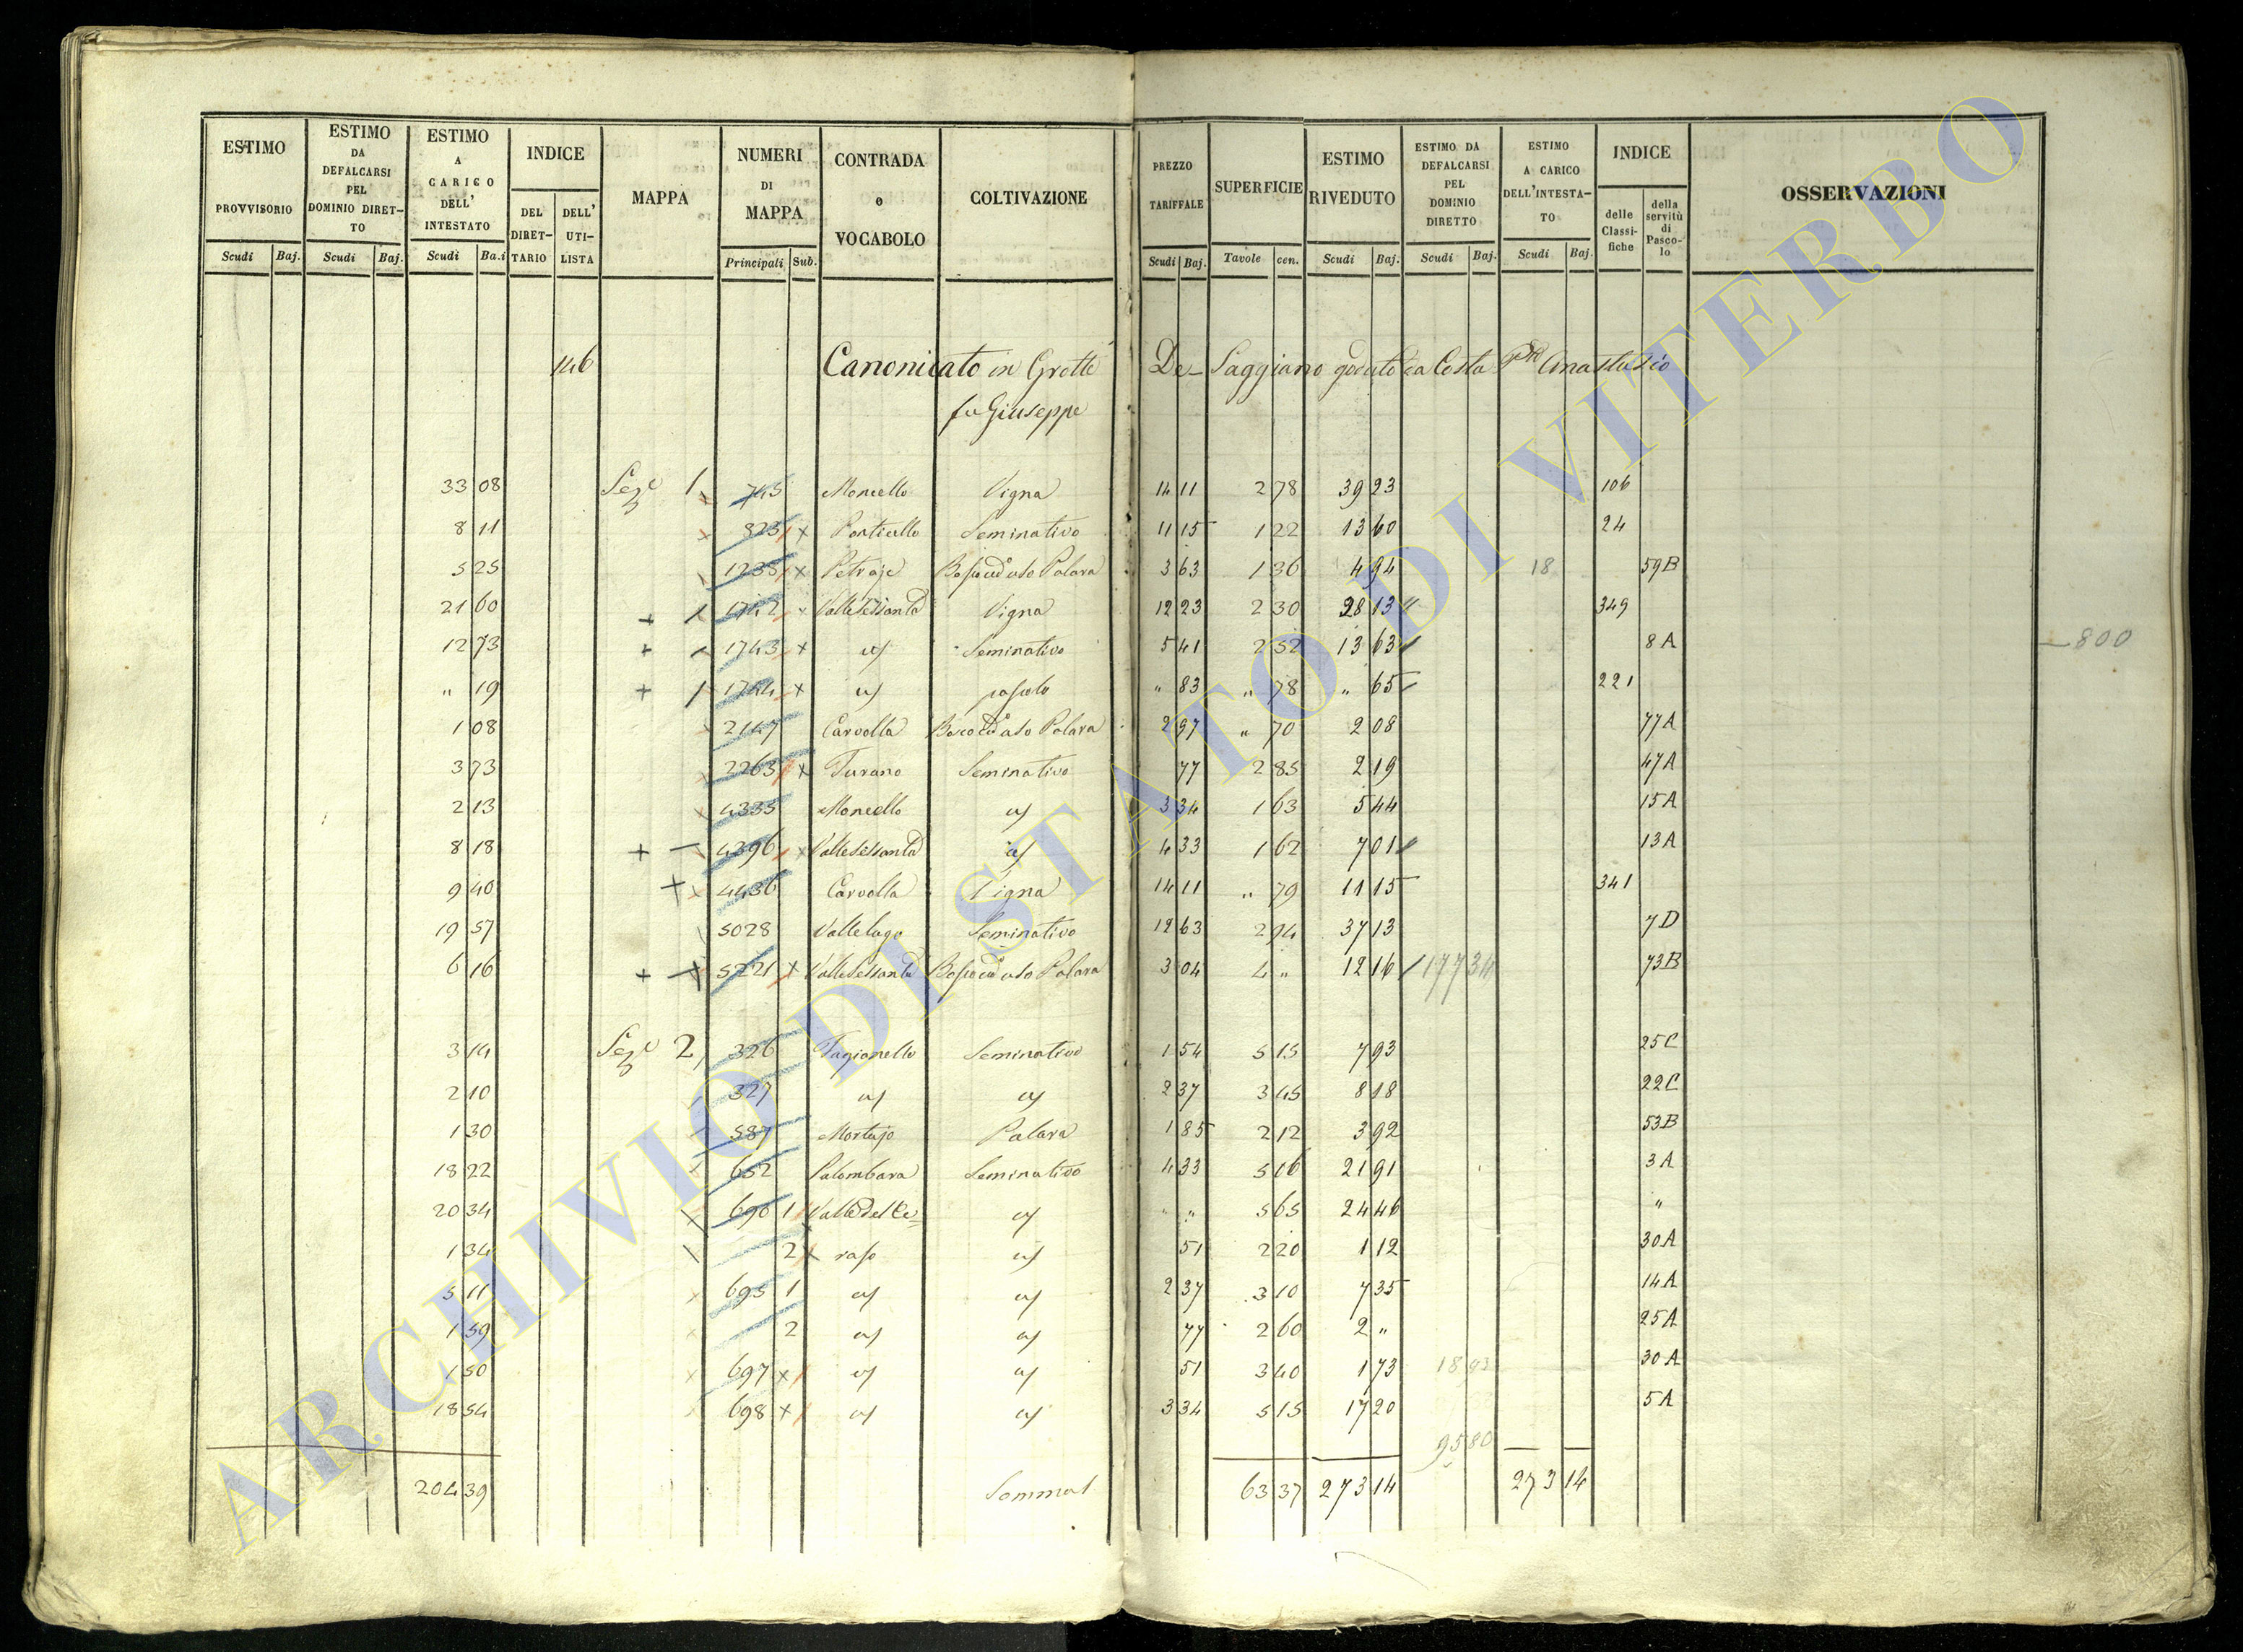 ESTIMO PROVVISORIO Scudi Baj.
ESTIMO DA DEFALCARSI PEL DOMINIO DIRETTO Scudi Baj.
ESTIMO A CARICO DELL' INTESTATO Scudi Ba.i
INDICE DEL DIRETTARIO DELL' UTILISTA
MAPPA
NUMERI DI MAPPA Principali Sub.
CONTRADA o VOCABOLO
COLTIVAZIONE
PREZZO TARIFFALE Scudi Baj.
SUPERFICIE Tavole cen.
ESTIMO RIVEDUTO Scudi Baj.
ESTIMO DA DEFALCARSI PEL DOMINIO DIRETTO Scudi Baj.
ESTIMO A CARICO DELL'INTESTATO Scudi Baj.
INDICE delle Classifiche della servitù di Pascolo
OSSERVAZIONI
146 Canonicato in Grotte De Saggiano goduto da Costa Anastasio
fu Giuseppe
33 08 Sez.e 1 745 Moncello Vigna 14 11 2 78 39 23 106
8 11 823 x Ponticello Seminativo 11 15 1 22 13 60 24
5 25 1235 x Petraje Bosco ad uso Palara 3 63 1 36 4 94 18 59B
21 60 + 1742 x Vigna 12 23 2 30 28 13 " 349
12 73 + 1743 x Seminativo 5 41 2 52 13 63 8A 800
" 19 + 1744 x pascolo " 83 " 78 " 65 221
1 08 2147 Carvolla Bosco ad uso Palara 2 97 " 70 2 08 77A
3 73 2263 x Turano Seminativo 77 2 85 2 19 47A
2 13 4335 Moncello 3 34 1 63 5 44 15A
8 18 + 4396 x 4 33 1 62 7 01 13A
9 40 + 4436 Carvolla Vigna 14 11 " 79 11 15 341
19 57 5028 Vallelago Seminativo 12 63 2 94 37 13 7D
6 16 + 5221 x Bosco ad uso Palara 3 04 4 " 12 16 177 34 73B
3 14 Sez.e 2 326 Seminativo 1 54 5 15 7 93 25C
2 10 327 2 37 3 45 8 18 22C
1 30 587 Mortajo Palara 1 85 2 12 3 92 53B
18 22 652 Palombara Seminativo 4 33 5 06 21 91 3A
20 34 690 1 Valle del Ce= " " 5 65 24 46 "
1 34 2 x raso 51 2 20 1 12 30A
5 11 695 1 2 37 3 10 7 35 14A
1 59 2 77 2 60 2 " 25A
1 50 697 x 51 3 40 1 73 30A
18 54 698 x 3 34 5 15 17 20 5A
95 80
204 39 Somma 63 37 273 14 273 14
ARCHIVIO DI STATO DI VITERBO